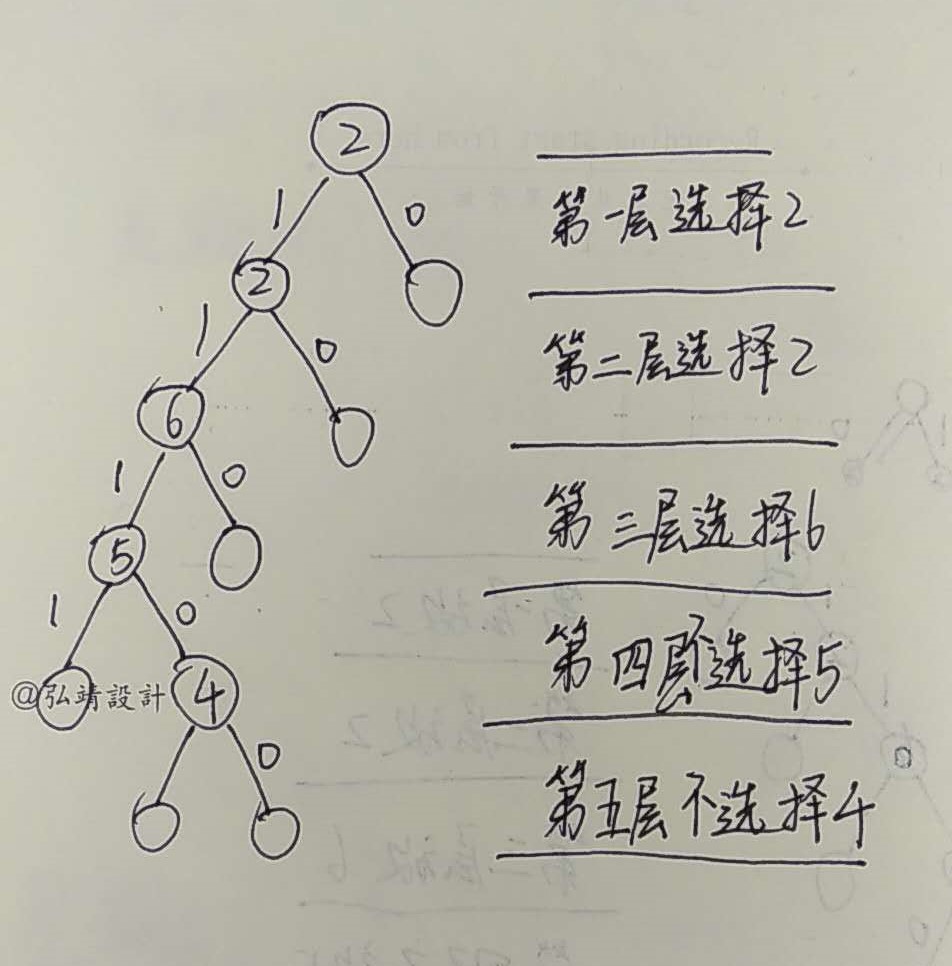 2
1 0
2
1 0
6
1 0
5
1 0
4
0
第一层选择2
第二层选择2
第三层选择6
第四层选择5
第五层不选择4
@弘靖設計